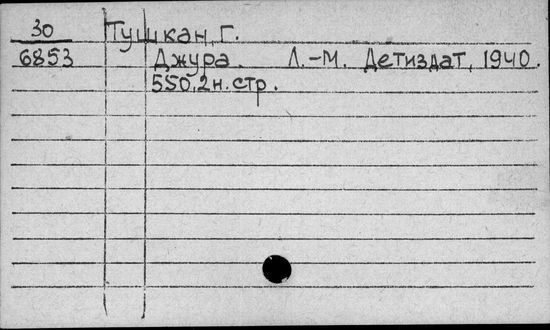 30 Тушкан, Г.
6853 Джура. Л.-М. Детиздат, 1940.
550, 2 н. стр.